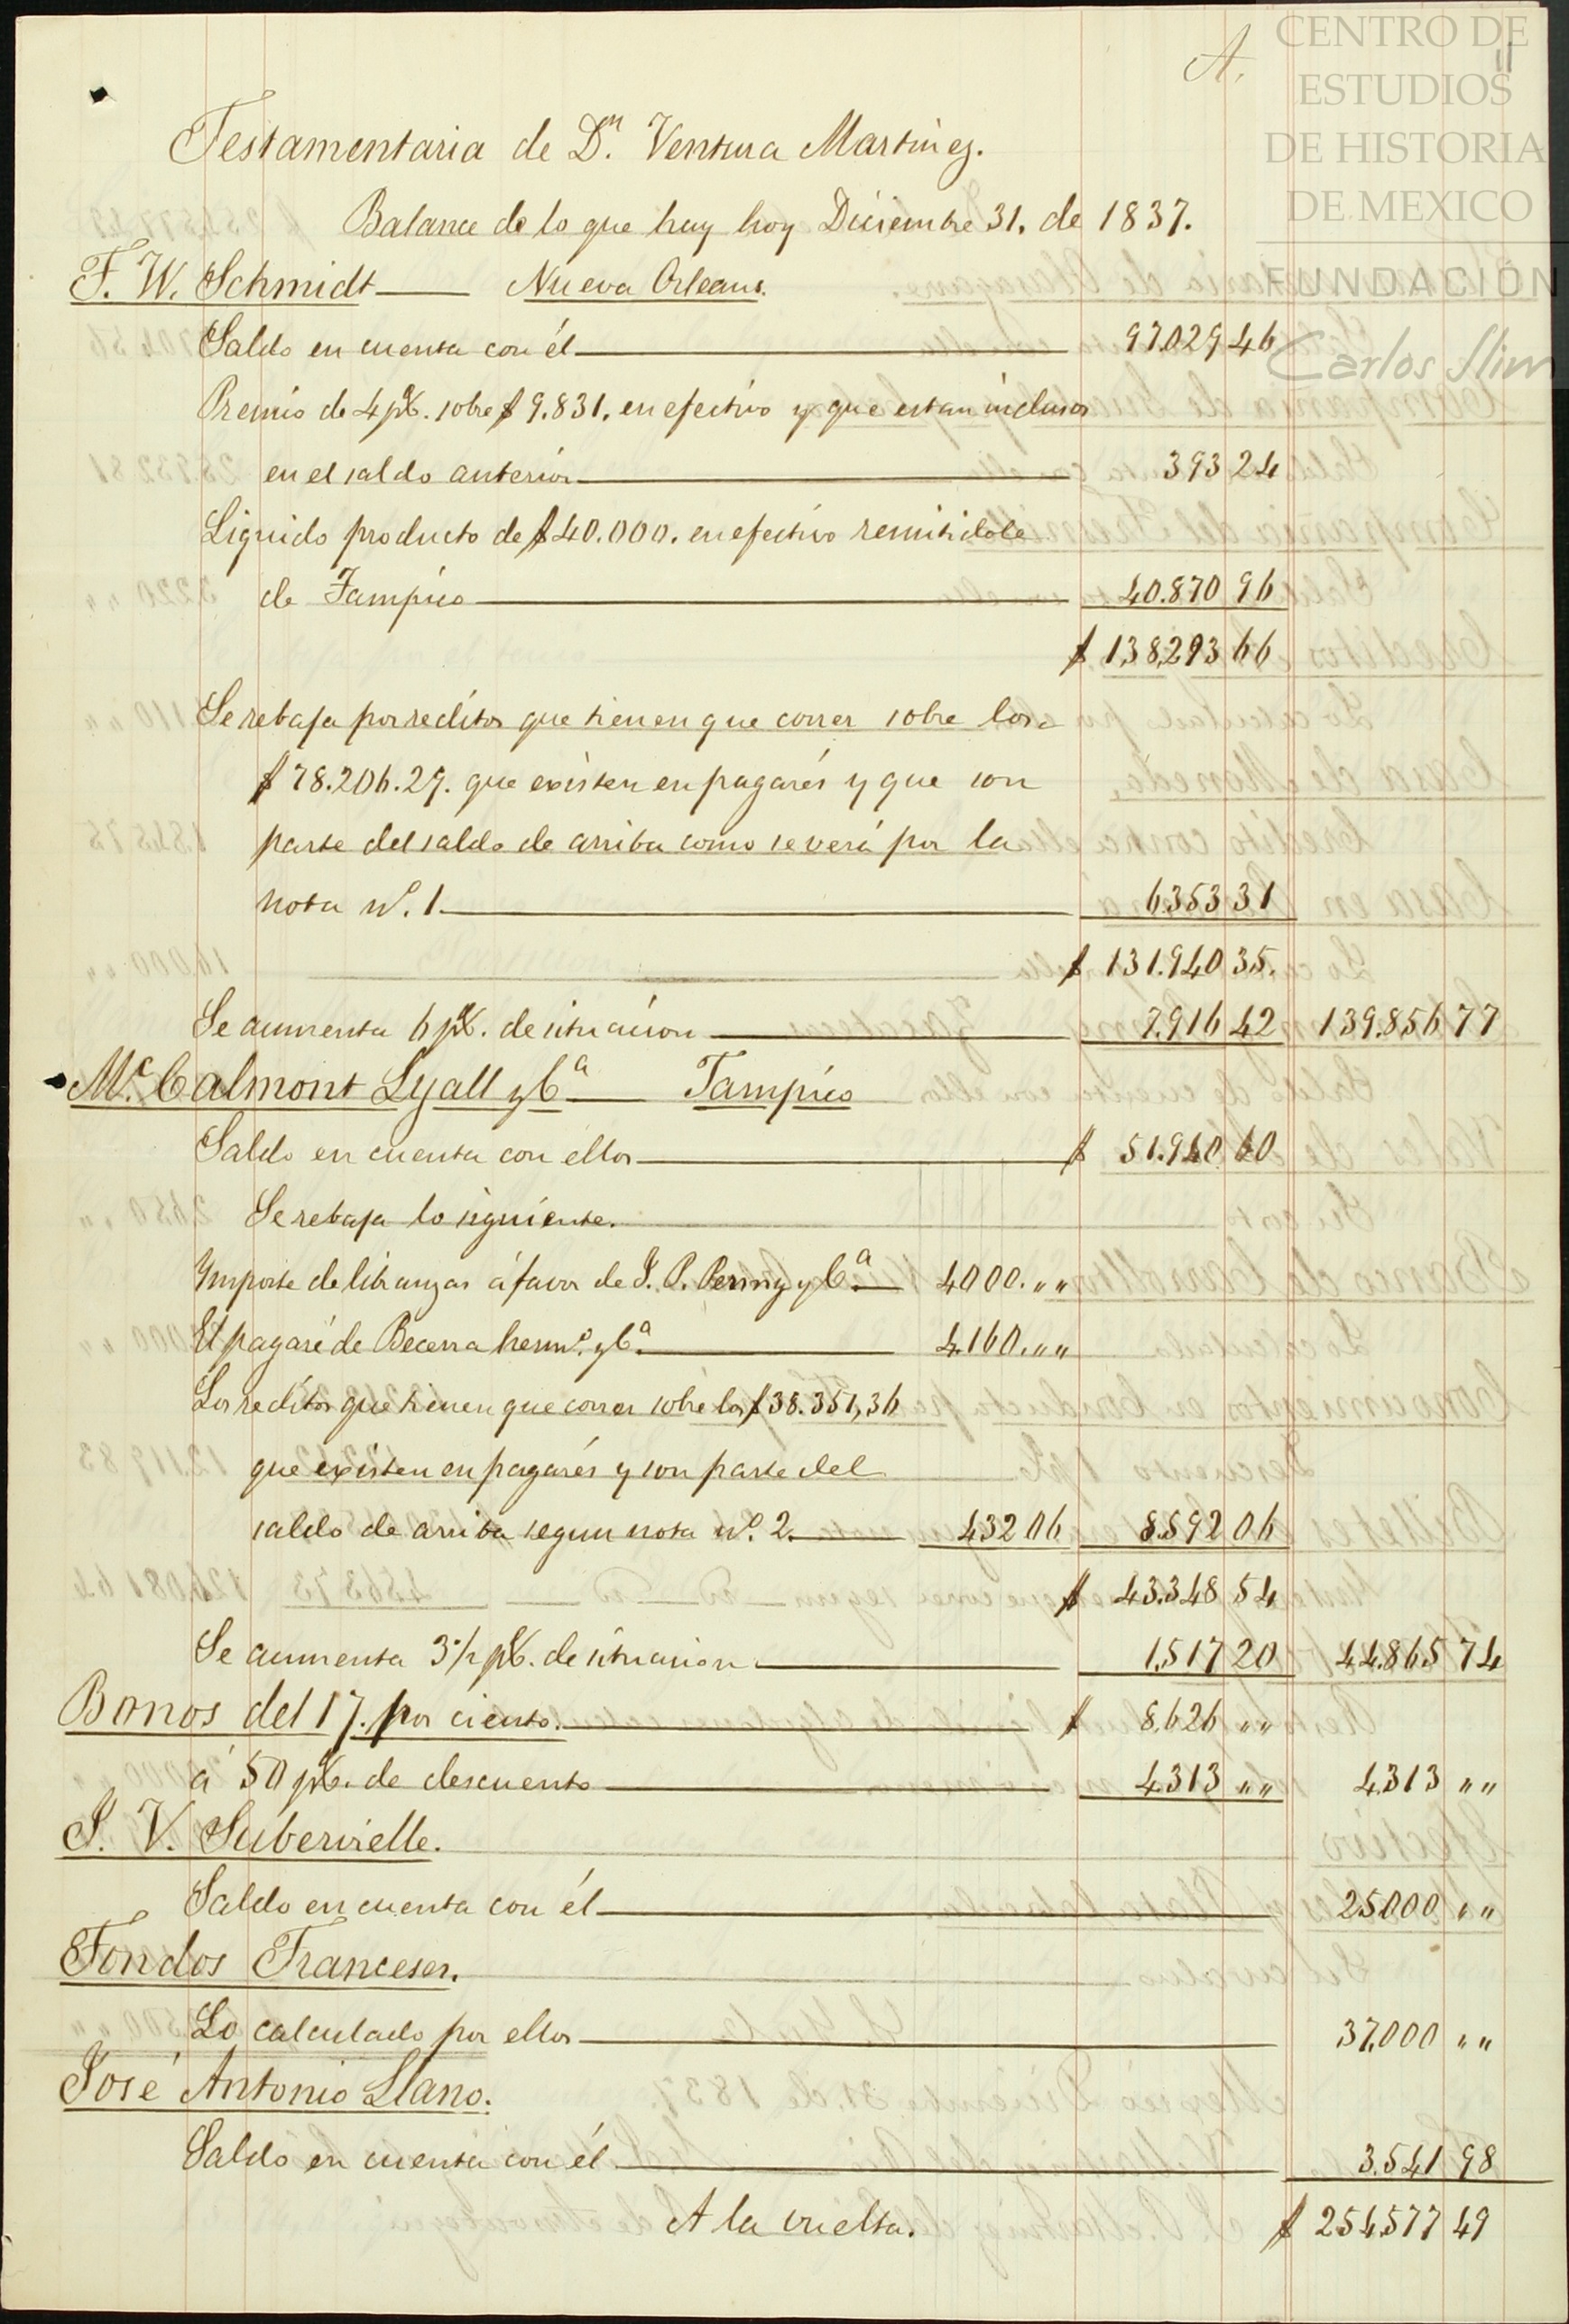 A.
11
CENTRO DE
ESTUDIOS
DE HISTORIA
DE MEXICO
FUNDACIÓN
Carlos Slim
Testamentaria de Dn. Ventura Martinez.
Balance de lo que hay hoy Diciembre 31. de 1837.
F. W. Schmidt — Nueva Orleans.
Saldo en cuenta con él — 97.029 46
Premio de 4 p%. sobre $ 9.831. en efectivo y que estan inclusos
en el saldo anterior — 393 24
Liquido producto de $ 40.000. en efectivo remitidole
de Tampico — 40.870 96
$ 138,293 66
Se rebaja por reditos que tienen que correr sobre los
$ 78.206.29. que existen en pagarés y que son
parte del saldo de arriba como se verá por la
nota no. 1. — 6353 31
$ 131.940 35.
Se aumenta 6 p%. de situacion — 7.916 42 139.856 77
Mc. Calmont Lyall y Ca — Tampico
Saldo en cuenta con ellos — $ 51.940 60
Se rebaja lo siguiente.
Ymporte de libranzas á favor de J. P. Penny y Ca. — 4000. " "
El pagaré de Becerra hermo. y Ca. — 4.160. " "
Los reditos que tienen que correr sobre los $ 38.351,36
que existen en pagarés y son parte del
saldo de arriba segun nota no. 2. — 432 06 8.592 06
$ 43.348 54
Se aumenta 3 1/2 p%. de situacion — 1,517 20 44.865 74
Bonos del 17. por ciento. — $ 8.626 " "
á 50 p%. de descuento — 4.313 " " 4.313 " "
S. V. Subervielle.
Saldo en cuenta con él — 25.000 " "
Fondos Franceses.
Lo calculado por ellos — 37,000 " "
José Antonio Llano.
Saldo en cuenta con él — 3.541 98
A la vuelta. $ 254577 49